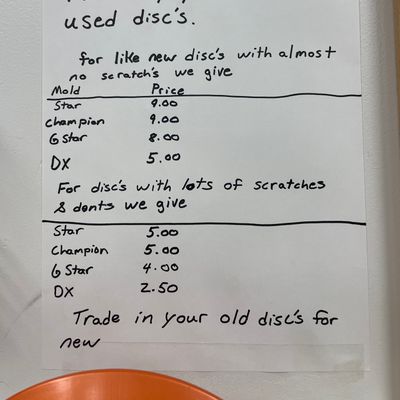 used disc's.
for like new disc's with almost
no scratch's we give
Mold Price
Star 9.00
Champion 9.00
G Star 8.00
DX 5.00
For disc's with lots of scratches
& dents we give
Star 5.00
Champion 5.00
G Star 4.00
DX 2.50
Trade in your old disc's for
new